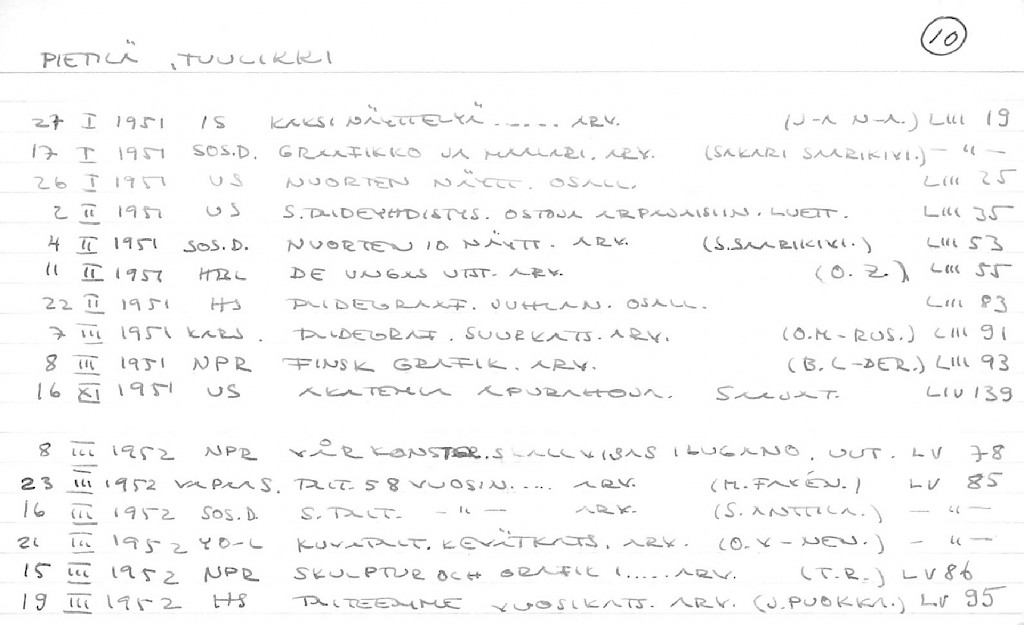 10
PIETILÄ, TUULIKKI
27 I 1951 IS KAKSI NÄYTTELYÄ...... ARV. (J-A N-A.) LIII 19
17 I 1951 SOS.D. GRAAFIKKO JA MAALARI. ARV. (SAKARI SAARIKIVI.) — " —
26 I 1951 US NUORTEN NÄYTT. OSALL. LIII 25
2 II 1951 US S.TAIDEYHDISTYS. OSTOJA ARPAJAISIIN. LUETT. LIII 35
4 II 1951 SOS.D. NUORTEN 10 NÄYTT. ARV. (S.SAARIKIVI.) LIII 53
11 II 1951 HBL DE UNGAS UTST. ARV. (O. Z.) LIII 55
22 II 1951 HS TAIDEGRAAF. JUHLAN. OSALL. LIII 83
7 III 1951 KARJ. TAIDEGRAF. SUURKATS. ARV. (O.M-RUS.) LIII 91
8 III 1951 NPR FINSK GRAFIK. ARV. (B. L-DER.) LIII 93
16 XI 1951 US AKATEMIA APURAHOJA. SAAJAT. LIV 139
8 III 1952 NPR VÅR KONST SKALL VISAS I LUGANO. UUT. LV 78
23 III 1952 VAPAA S. TAIT. 58 VUOSIN..... ARV. (M.FAKÉN.) LV 85
16 III 1952 SOS.D. S.TAIT. — " — ARV. (S.ANTTILA.) — " —
21 III 1952 YO-L KUVATAIT. KEVÄTKATS. ARV. (O.V-NEN.) — " —
15 III 1952 NPR SKULPTUR OCH GRAFIK I..... ARV. (T.R.) LV 86
19 III 1952 HS TAITEEMME VUOSIKATS. ARV. (J.PUOKKA.) LV 95